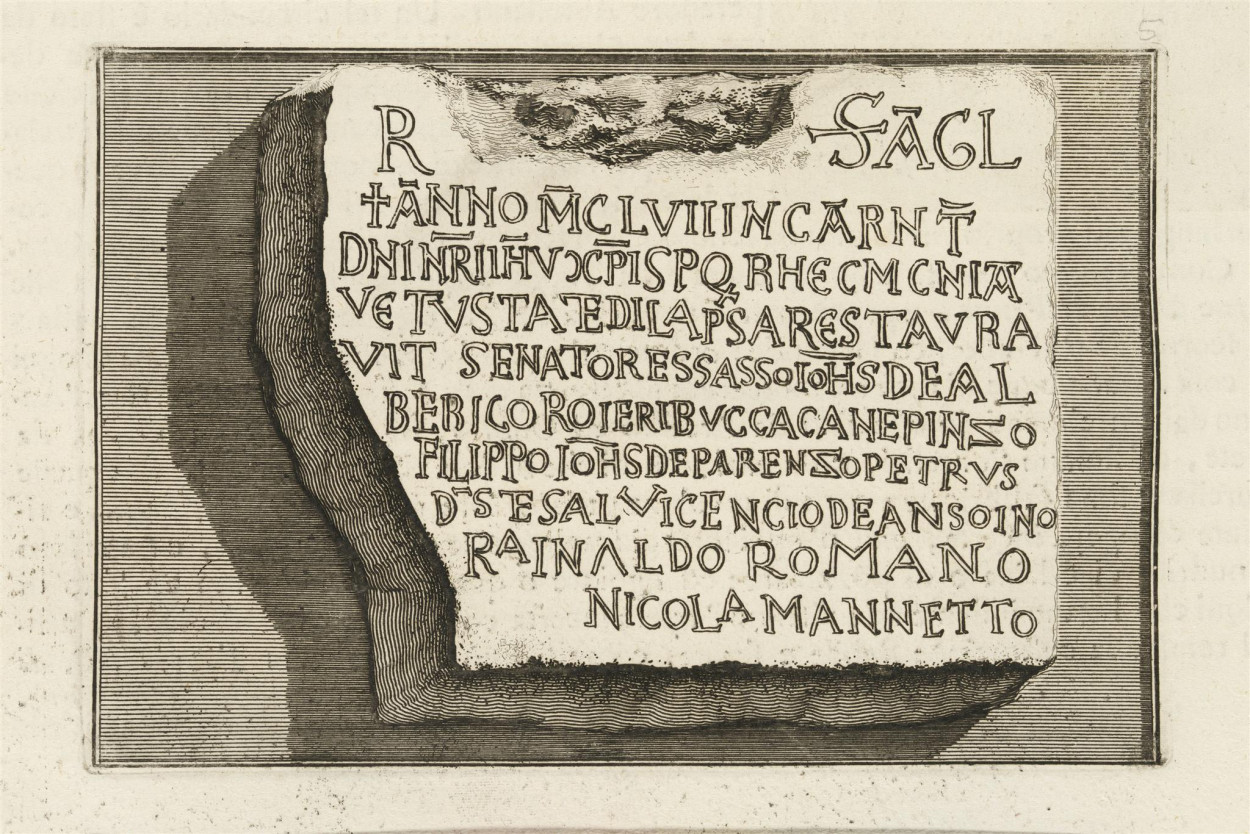 5
R SĀGL
+ĀNNO M̄CLVII INCĀRNT̄
DNI N̄RI IH̄V XC̄PI SPQR HEC MCNIĀ
VETVSTATE DILAPSA RESTAVRA
VIT SENATORES SASSO IOH̄S DE AL
BERICO ROIERI BVCCACANE PINZO
FILIPPO IOH̄S DE PARENZO PETRVS
D̄S TE SALVI CENCIO DE ANSOINO
RAINALDO ROMANO
NICOLA MANNETTO